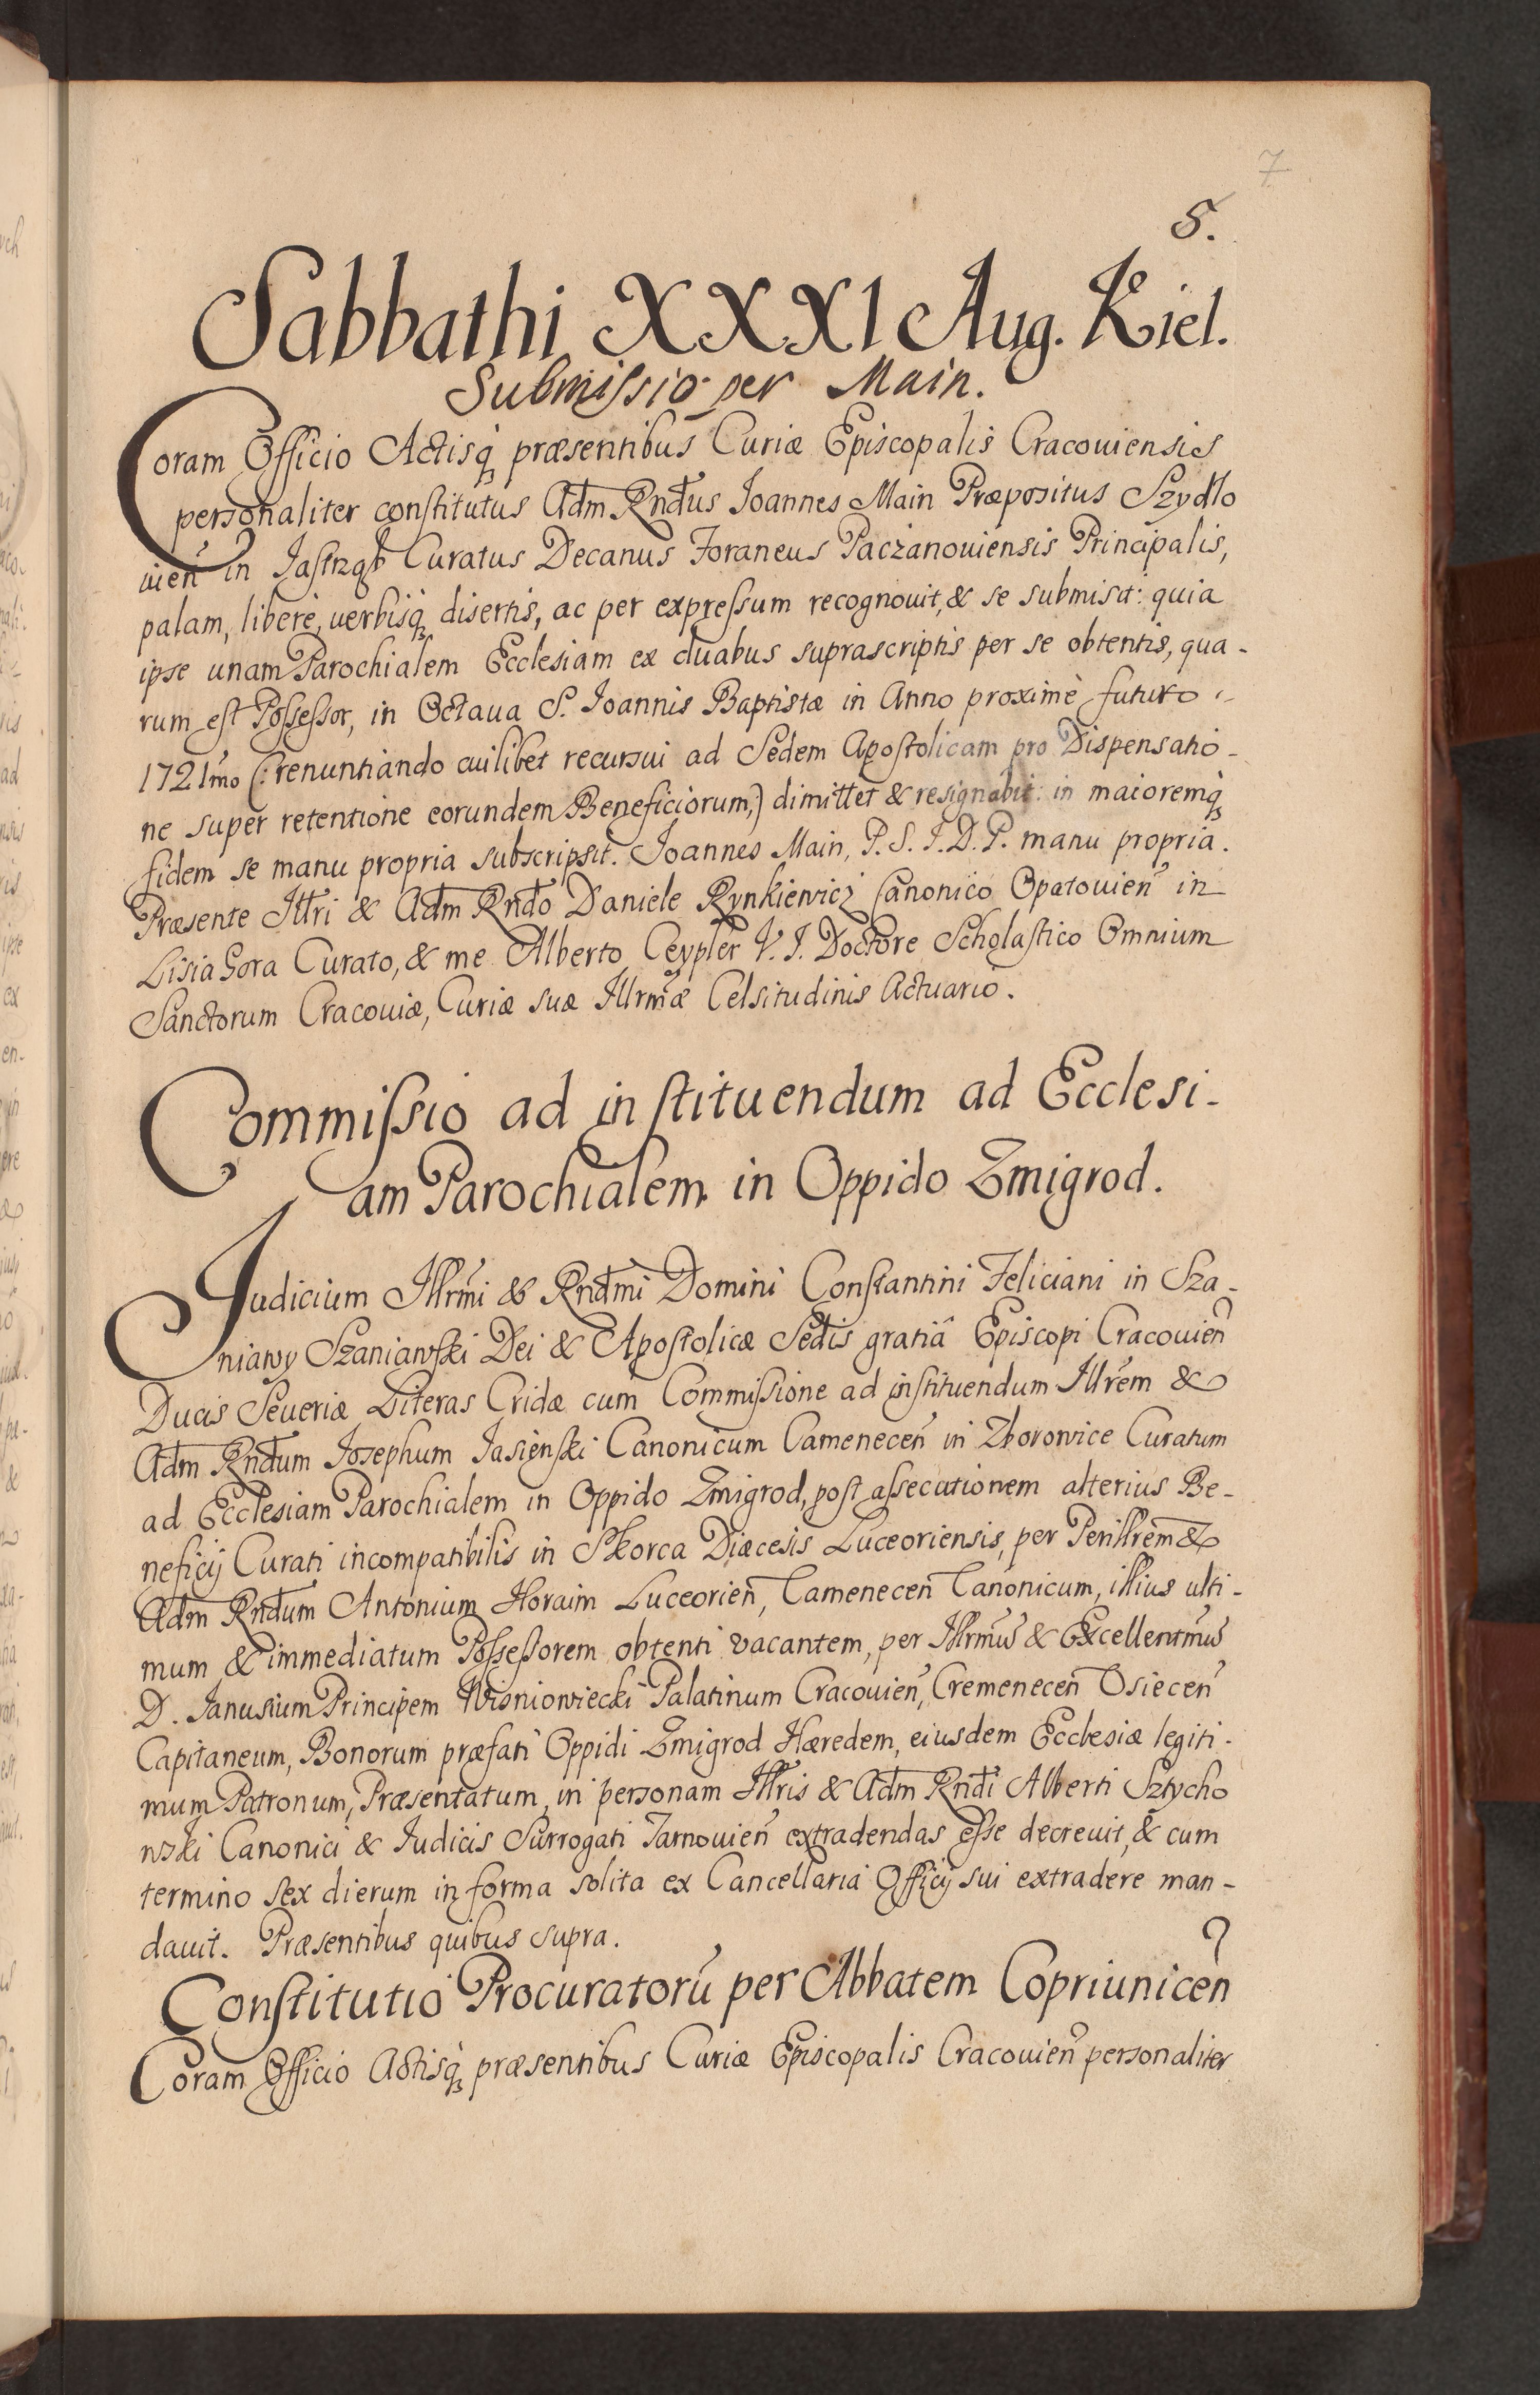 7
5.
Sabbathi XXXI Aug. Kiel.
Submissio per Main.
Coram Officio Actisq́ præsentibus Curiæ Episcopalis Cracouiensis
personaliter constitutus Adm Rndus Ioannes Main Præpositus Szydło
uien̄ in Jastrząb Curatus Decanus Foraneus Paczanouiensis Principalis,
palam, liberè, verbisq́ disertis, ac per expressum recognouit, & se submisit: quia
ipse unam Parochialem Ecclesiam ex duabus suprascriptis per se obtentis, qua-
rum est Possessor, in Octaua S. Ioannis Baptistæ in Anno proximè futuro
1721mo (: renuntiando cuilibet recursui ad Sedem Apostolicam pro Dispensatio-
ne super retentione eorundem Beneficiorum,) dimittet & resignabit: in maioremq́
fidem se manu propria subscripsit. Ioannes Main, P. S. I. D. P. manu propria.
Præsente Illri & Adm Rndo Daniele Rynkiewicz Canonico Opatouien̄ in
Lisia Gora Curato, & me Alberto Ceypler V. I. Doctore Scholastico Omnium
Sanctorum Cracouiæ, Curiæ suæ Illrmæ Celsitudinis Actuario.
Commissio ad instituendum ad Ecclesi-
am Parochialem in Oppido Zmigrod.
Iudicium Illrmi & Rndmi Domini Constantini Feliciani in Sza-
niawy Szaniawski Dei & Apostolicæ Sedis gratiâ Episcopi Cracouien̄
Ducis Seueriæ Literas Cridæ cum Commissione ad instituendum Illrem &
Adm Rndum Iosephum Iasienski Canonicum Camenecen̄ in Zborowice Curatum
ad Ecclesiam Parochialem in Oppido Zmigrod, post assecutionem alterius Be-
neficij Curati incompatibilis in Skorca Diæcesis Luceoriensis, per Perillrem &
Adm Rndum Antonium Horaim Luceorien̄, Camenecen̄ Canonicum, illius ulti-
mum & immediatum Possessorem obtenti vacantem, per Illrmus & Excellentmus
D. Ianusium Principem Wisniowiecki Palatinum Cracouien̄, Cremenecen̄ Osiecen̄
Capitaneum, Bonorum præfati Oppidi Zmigrod Hæredem, eiusdem Ecclesiæ legiti-
mum Patronum, Præsentatum, in personam Illris & Adm Rndi Alberti Sztycho
wski Canonici & Iudicis Surrogati Tarnouien̄ extradendas esse decreuit, & cum
termino sex dierum in forma solita ex Cancellaria Officij sui extradere man-
dauit. Præsentibus quibus supra.
Constitutio Procuratorū per Abbatem Copriunicen̄
Coram Officio Actisq́ præsentibus Curiæ Episcopalis Cracouien̄ personaliter